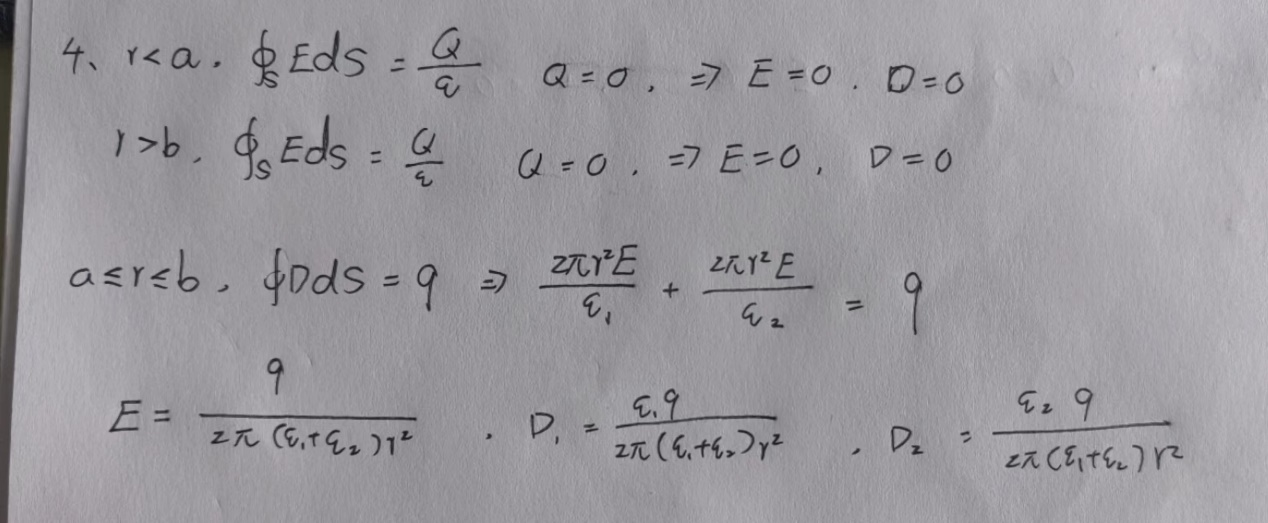 4、r<a. ∮_S Eds = Q/ε Q=0, ⇒ E=0. D=0
r>b. ∮_S Eds = Q/ε Q=0. ⇒ E=0, D=0
a≤r≤b, ∮Dds = q ⇒ 2πr²E/ε₁ + 2πr²E/ε₂ = q
E = q/(2π(ε₁+ε₂)r²) . D₁ = ε₁q/(2π(ε₁+ε₂)r²) , D₂ = ε₂q/(2π(ε₁+ε₂)r²)